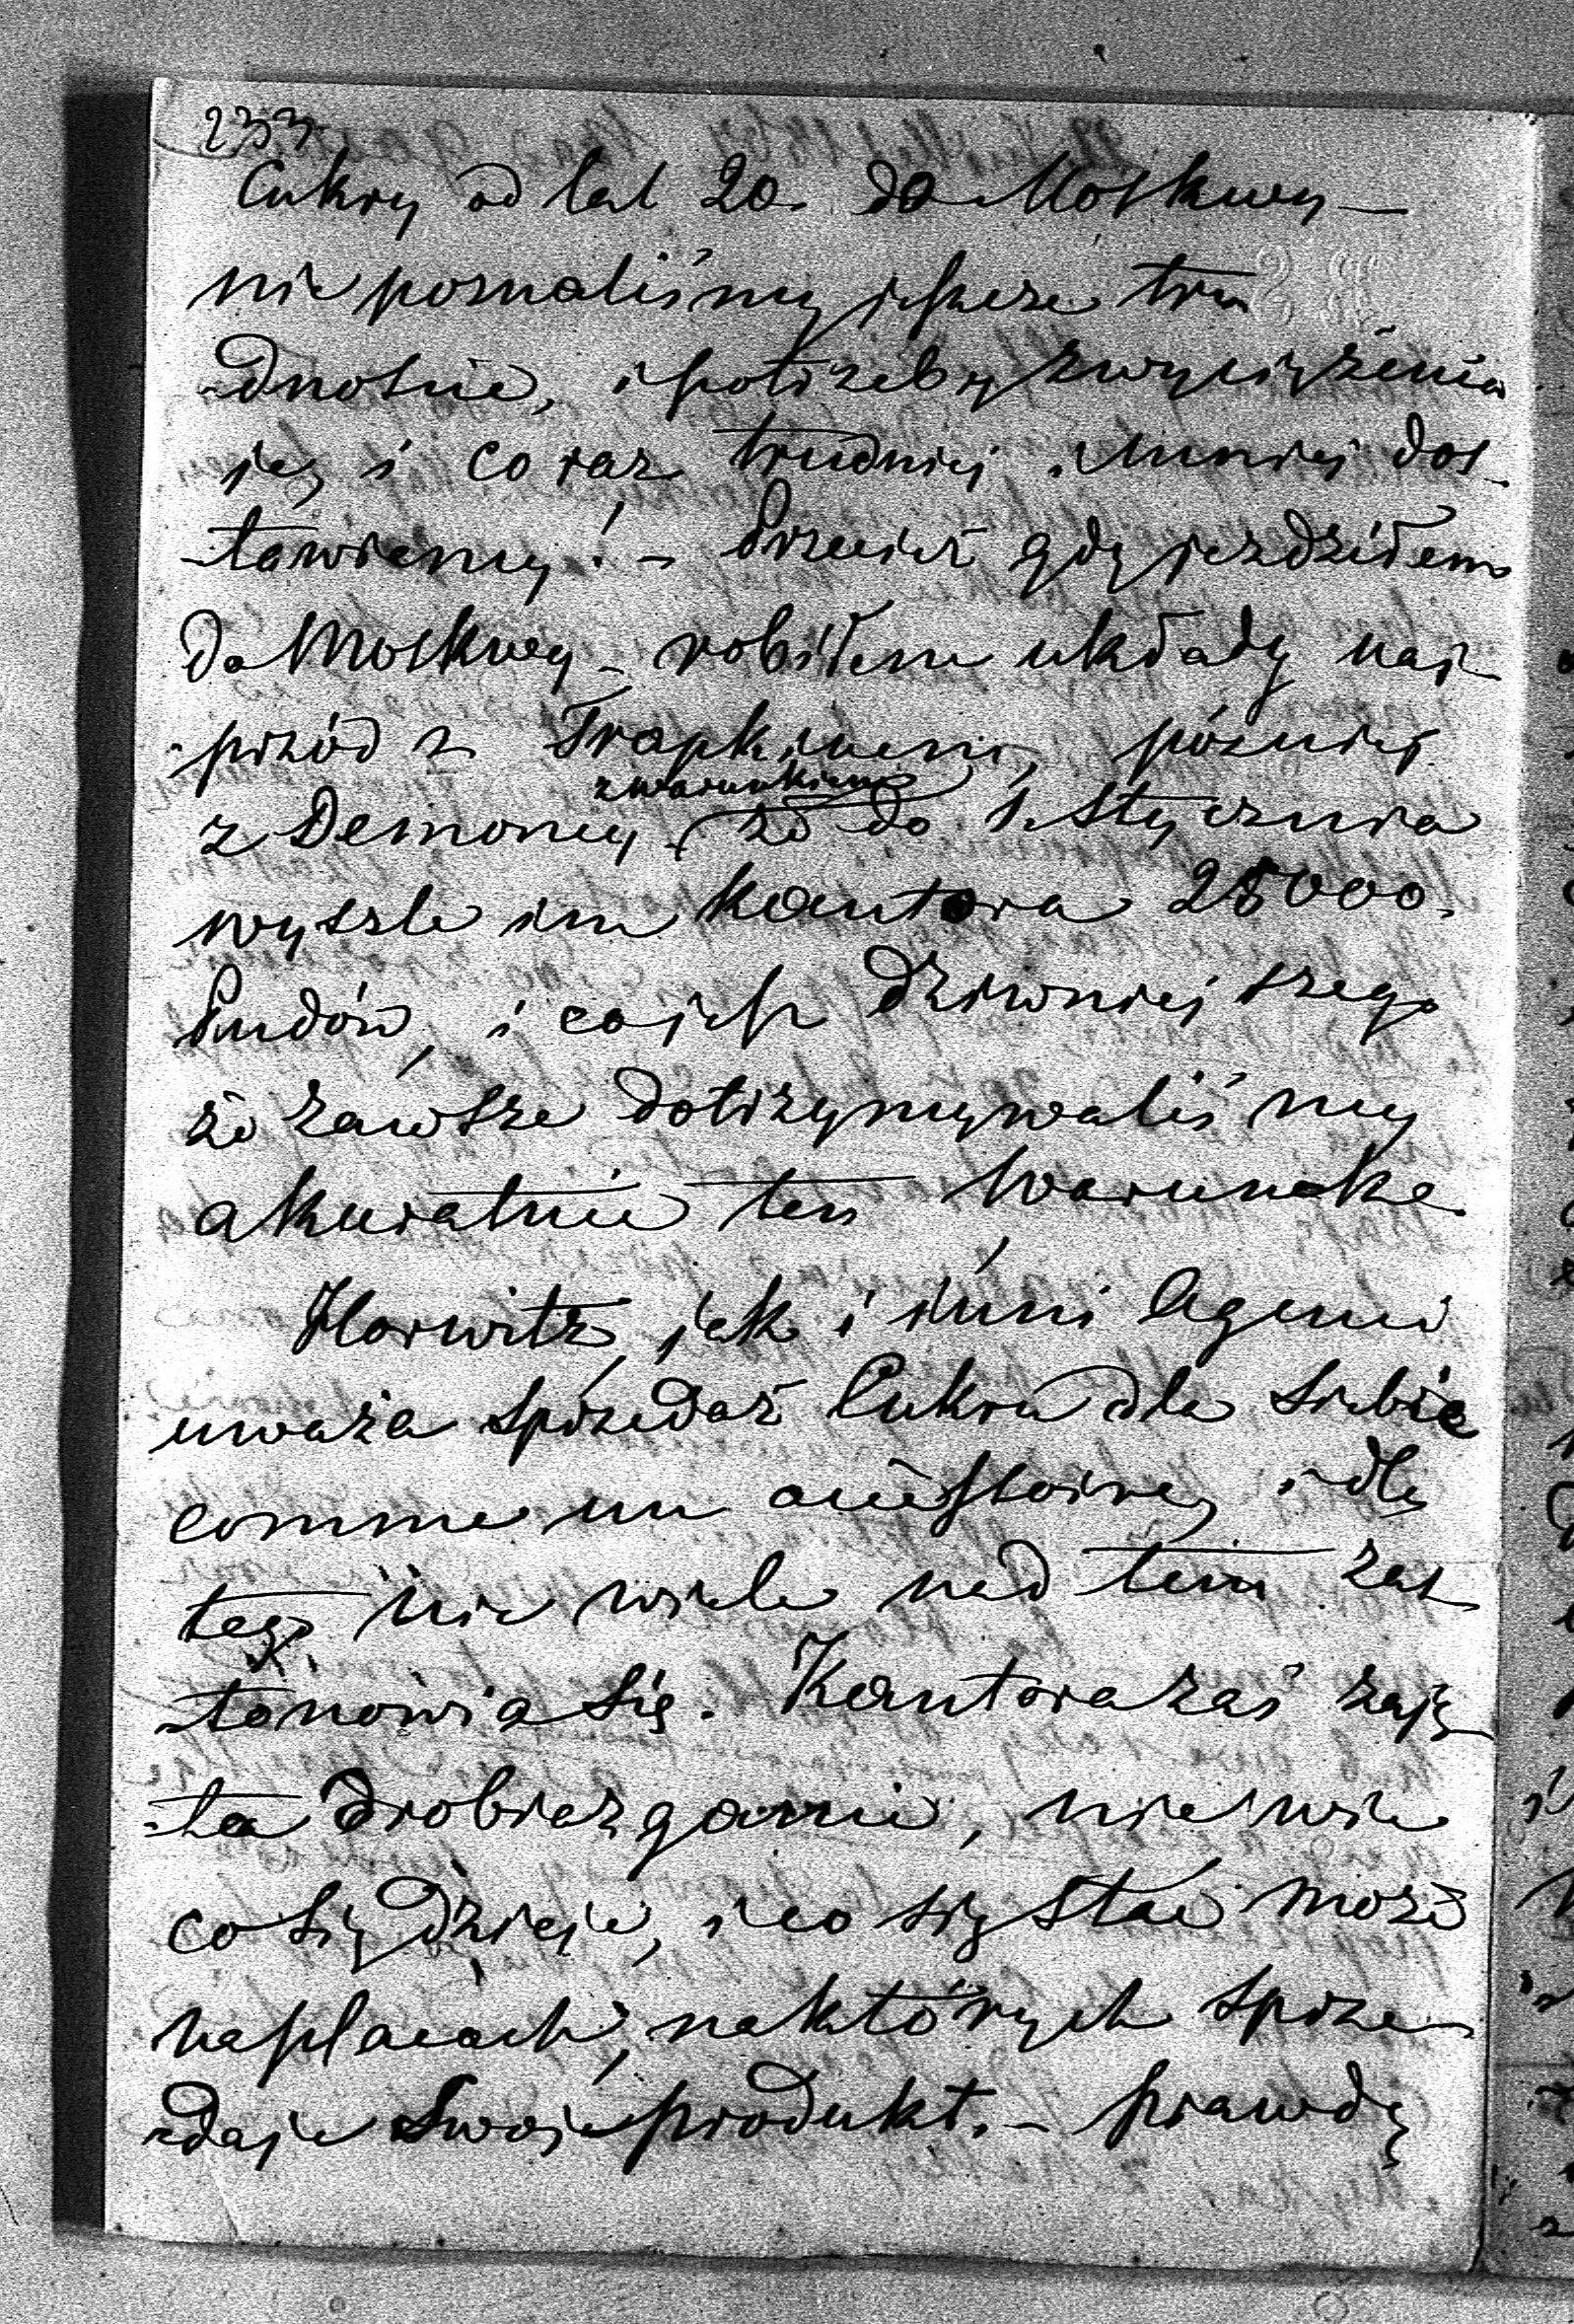 233
Cukry od lat 20. do Moskwy —
nie poznaliśmy jeszcze tru
dnoście, i potrzeby zwyciężenia
jej i co raz trudniej i mniej dos-
tawiemy! – Przecież gdy jezdziłem
do Moskwy – robiłem układy naj-
przód z Trapkinem, później
z Demoncy z warunkiem że do 1 Stycznia
wyszle im Kantora 25000.
Pudów, i co jest dziwniejszego
że zawsze dotrzymywaliśmy
akuratnie ten Warunek.
Horwitz, jak i inni Agenci
uważa sprzedaż Cukru dla siebie
comme un accessoire, i dla
tego nie wiele nad tem zas
tanowia się. Kantora zaś zaję
ta drobiazgami, nie wie
co się dzieje, i co się stać może
na placach, na których sprze-
daje Swoje produkt. – prawdę